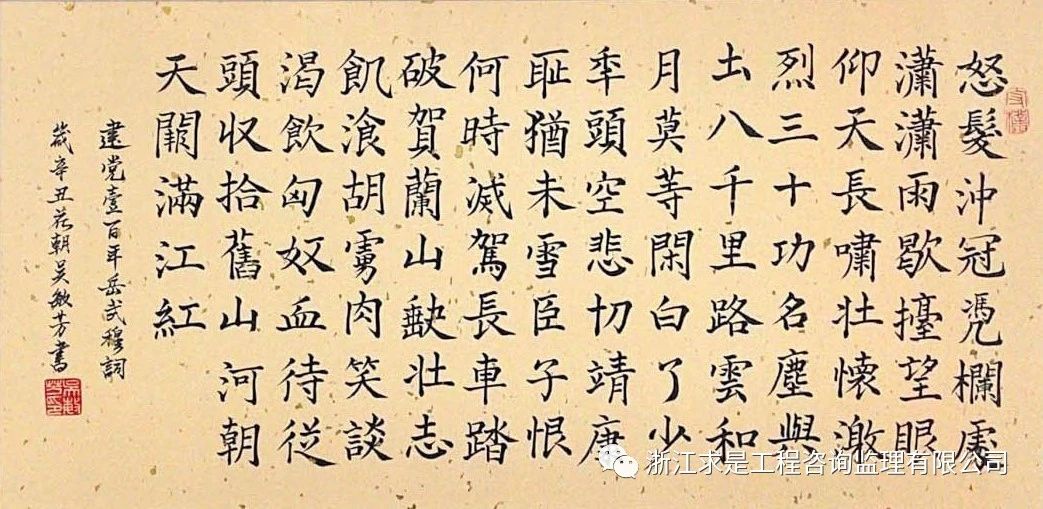 怒髮沖冠凴欄處
瀟瀟雨歇擡望眼
仰天長嘯壯懷激
烈三十功名塵與
土八千里路雲和
月莫等閑白了少
年頭空悲切靖康
耻猶未雪臣子恨
何時滅駕長車踏
破賀蘭山缺壯志
飢湌胡虜肉笑談
渴飲匈奴血待從
頭收拾舊山河朝
天闕滿江紅
建党壹百年岳武穆詞
歲辛丑花朝吴敏芳書
浙江求是工程咨询监理有限公司